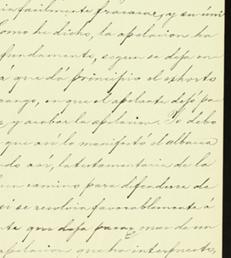 facilmente fracasar, y su úni
Como he dicho, la apelacion ha
fundamente, segun se deja en
á que dá principio el exhorto
rango, en que el apelante dejó pa
y acabar la apelacion. Yo debo
que así lo manifestó el albacea
la testamentaria de la
un camino para difendirse de
si se resolvia favorablemente á
te que deja pasar mas de un
apelacion que ha interpuesto,